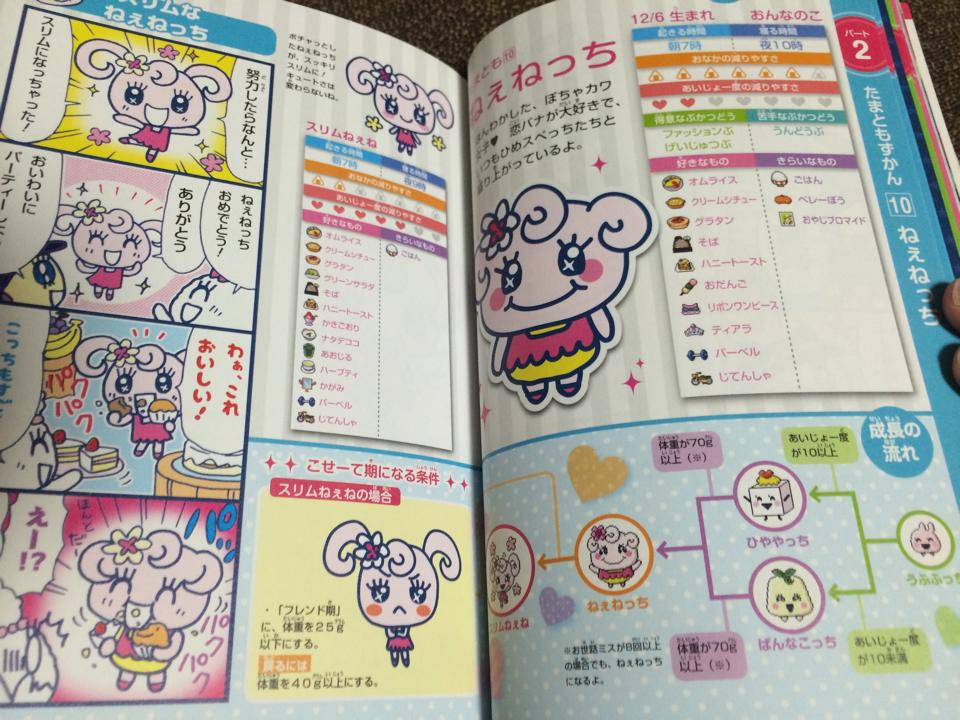 スリムな
ねぇねっち
努力したらなんと…
スリムになっちゃった！
ねぇねっち
おめでとう！
ありがとう
おいわいに
わぁ、これ
おいしい！
パク
パク
えー！？
パクパク
ポチャっとし
たねぇねっち
が、スッキリ
スリムに！
キュートさは
変わらないね。
スリムねぇね
起きる時間
寝る時間
朝7時
夜9時
おなかの減りやすさ
あいじょー度の減りやすさ
好きなもの
きらいなもの
オムライス
ごはん
クリームシチュー
グラタン
グリーンサラダ
そば
ハニートースト
かきごおり
ナタデココ
あおじる
ハーブティ
かがみ
バーベル
じてんしゃ
こせーて期になる条件
スリムねぇねの場合
・「フレンド期」
に、体重を25g
以下にする。
戻るには
体重を40g以上にする。
とも10
ねぇねっち
12/6 生まれ
おんなのこ
起きる時間
寝る時間
朝7時
夜10時
おなかの減りやすさ
あいじょー度の減りやすさ
得意なぶかつどう
苦手なぶかつどう
ファッションぶ
うんどうぶ
げいじゅつぶ
好きなもの
きらいなもの
オムライス
ごはん
クリームシチュー
ベレーぼう
グラタン
おやじブロマイド
そば
ハニートースト
おだんご
リボンワンピース
ティアラ
バーベル
じてんしゃ
わかした、ぽちゃカワ
恋バナが大好きで、
つもひめスペっちたちと
上がっているよ。
パート
2
たまともずかん 10 ねぇねっち
成長の
流れ
体重が70g
以上（※）
あいじょー度
が10以上
ひややっち
うぷぷっち
ねぇねっち
スリムねぇね
ばんなこっち
※お世話ミスが8回以上
の場合でも、ねぇねっち
になるよ。
体重が70g
以上（※）
あいじょー度
が10未満